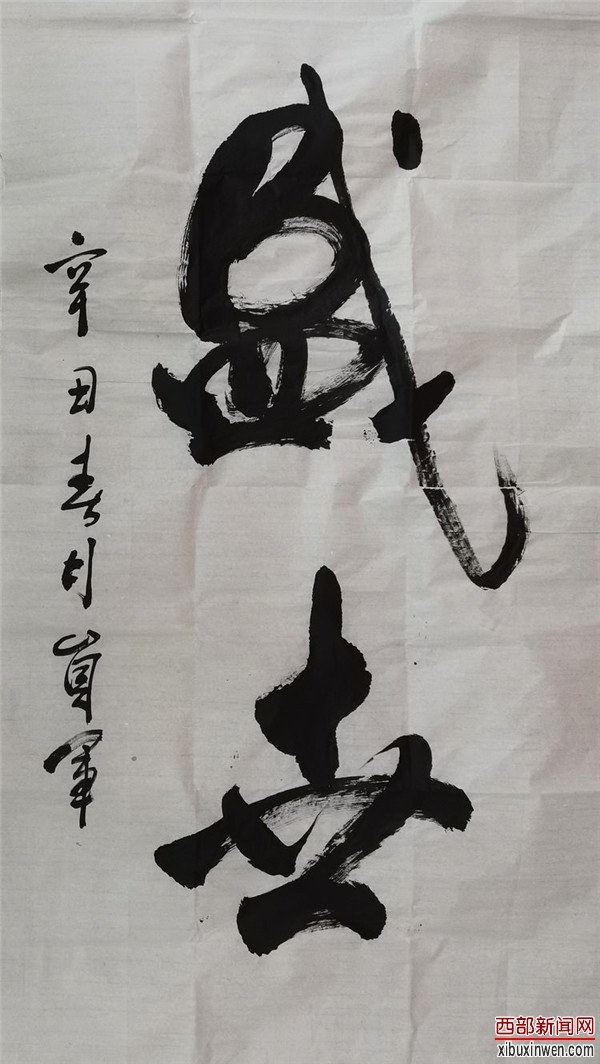 盛世
辛丑春月軍
西部新闻网
xibuxinwen.com